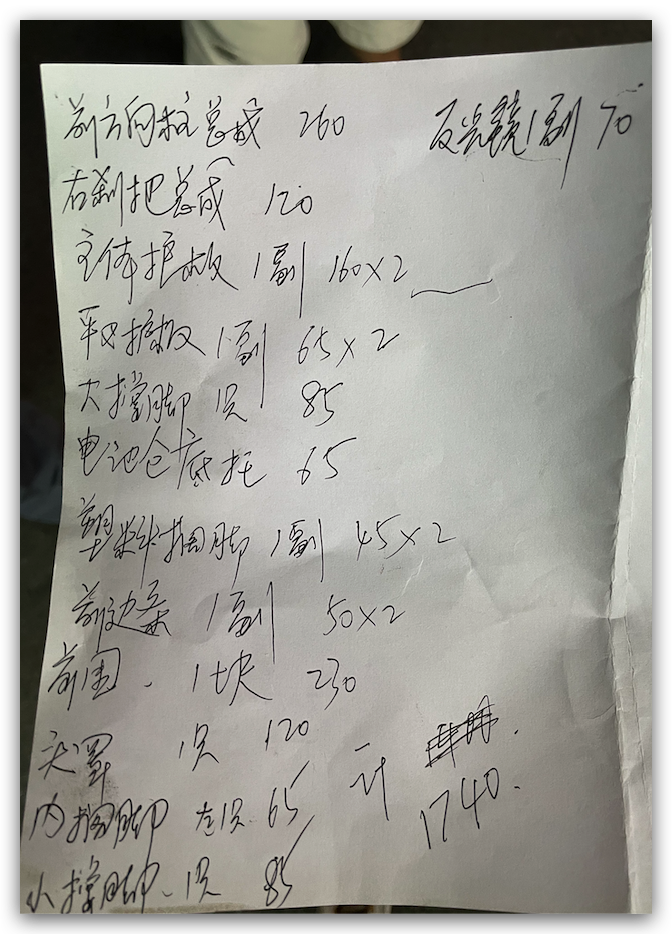 前方向柱总成 260 反光镜1副 70
右刹把总成 120
主体护板 1副 160×2
平叉护板 1副 65×2
大撑脚 1只 85
电池仓底托 65
塑料搁脚 1副 45×2
前边条 1副 50×2
前围. 1块 230
头罩 1只 120
内搁脚 左1只 65
小撑脚. 1只 85
计
1740.